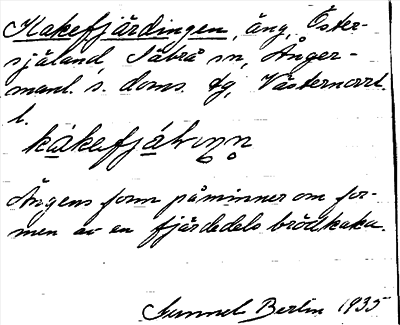 Kakefjärdingen, äng, Öster-
själand, Säbrå sn, Ånger-
manl. s. doms. tg, Västernorrl.
l.
kakefjä
Ängens form påminner om for-
men av en fjärdedels brödkaka.
Sunnel Berlin 1935